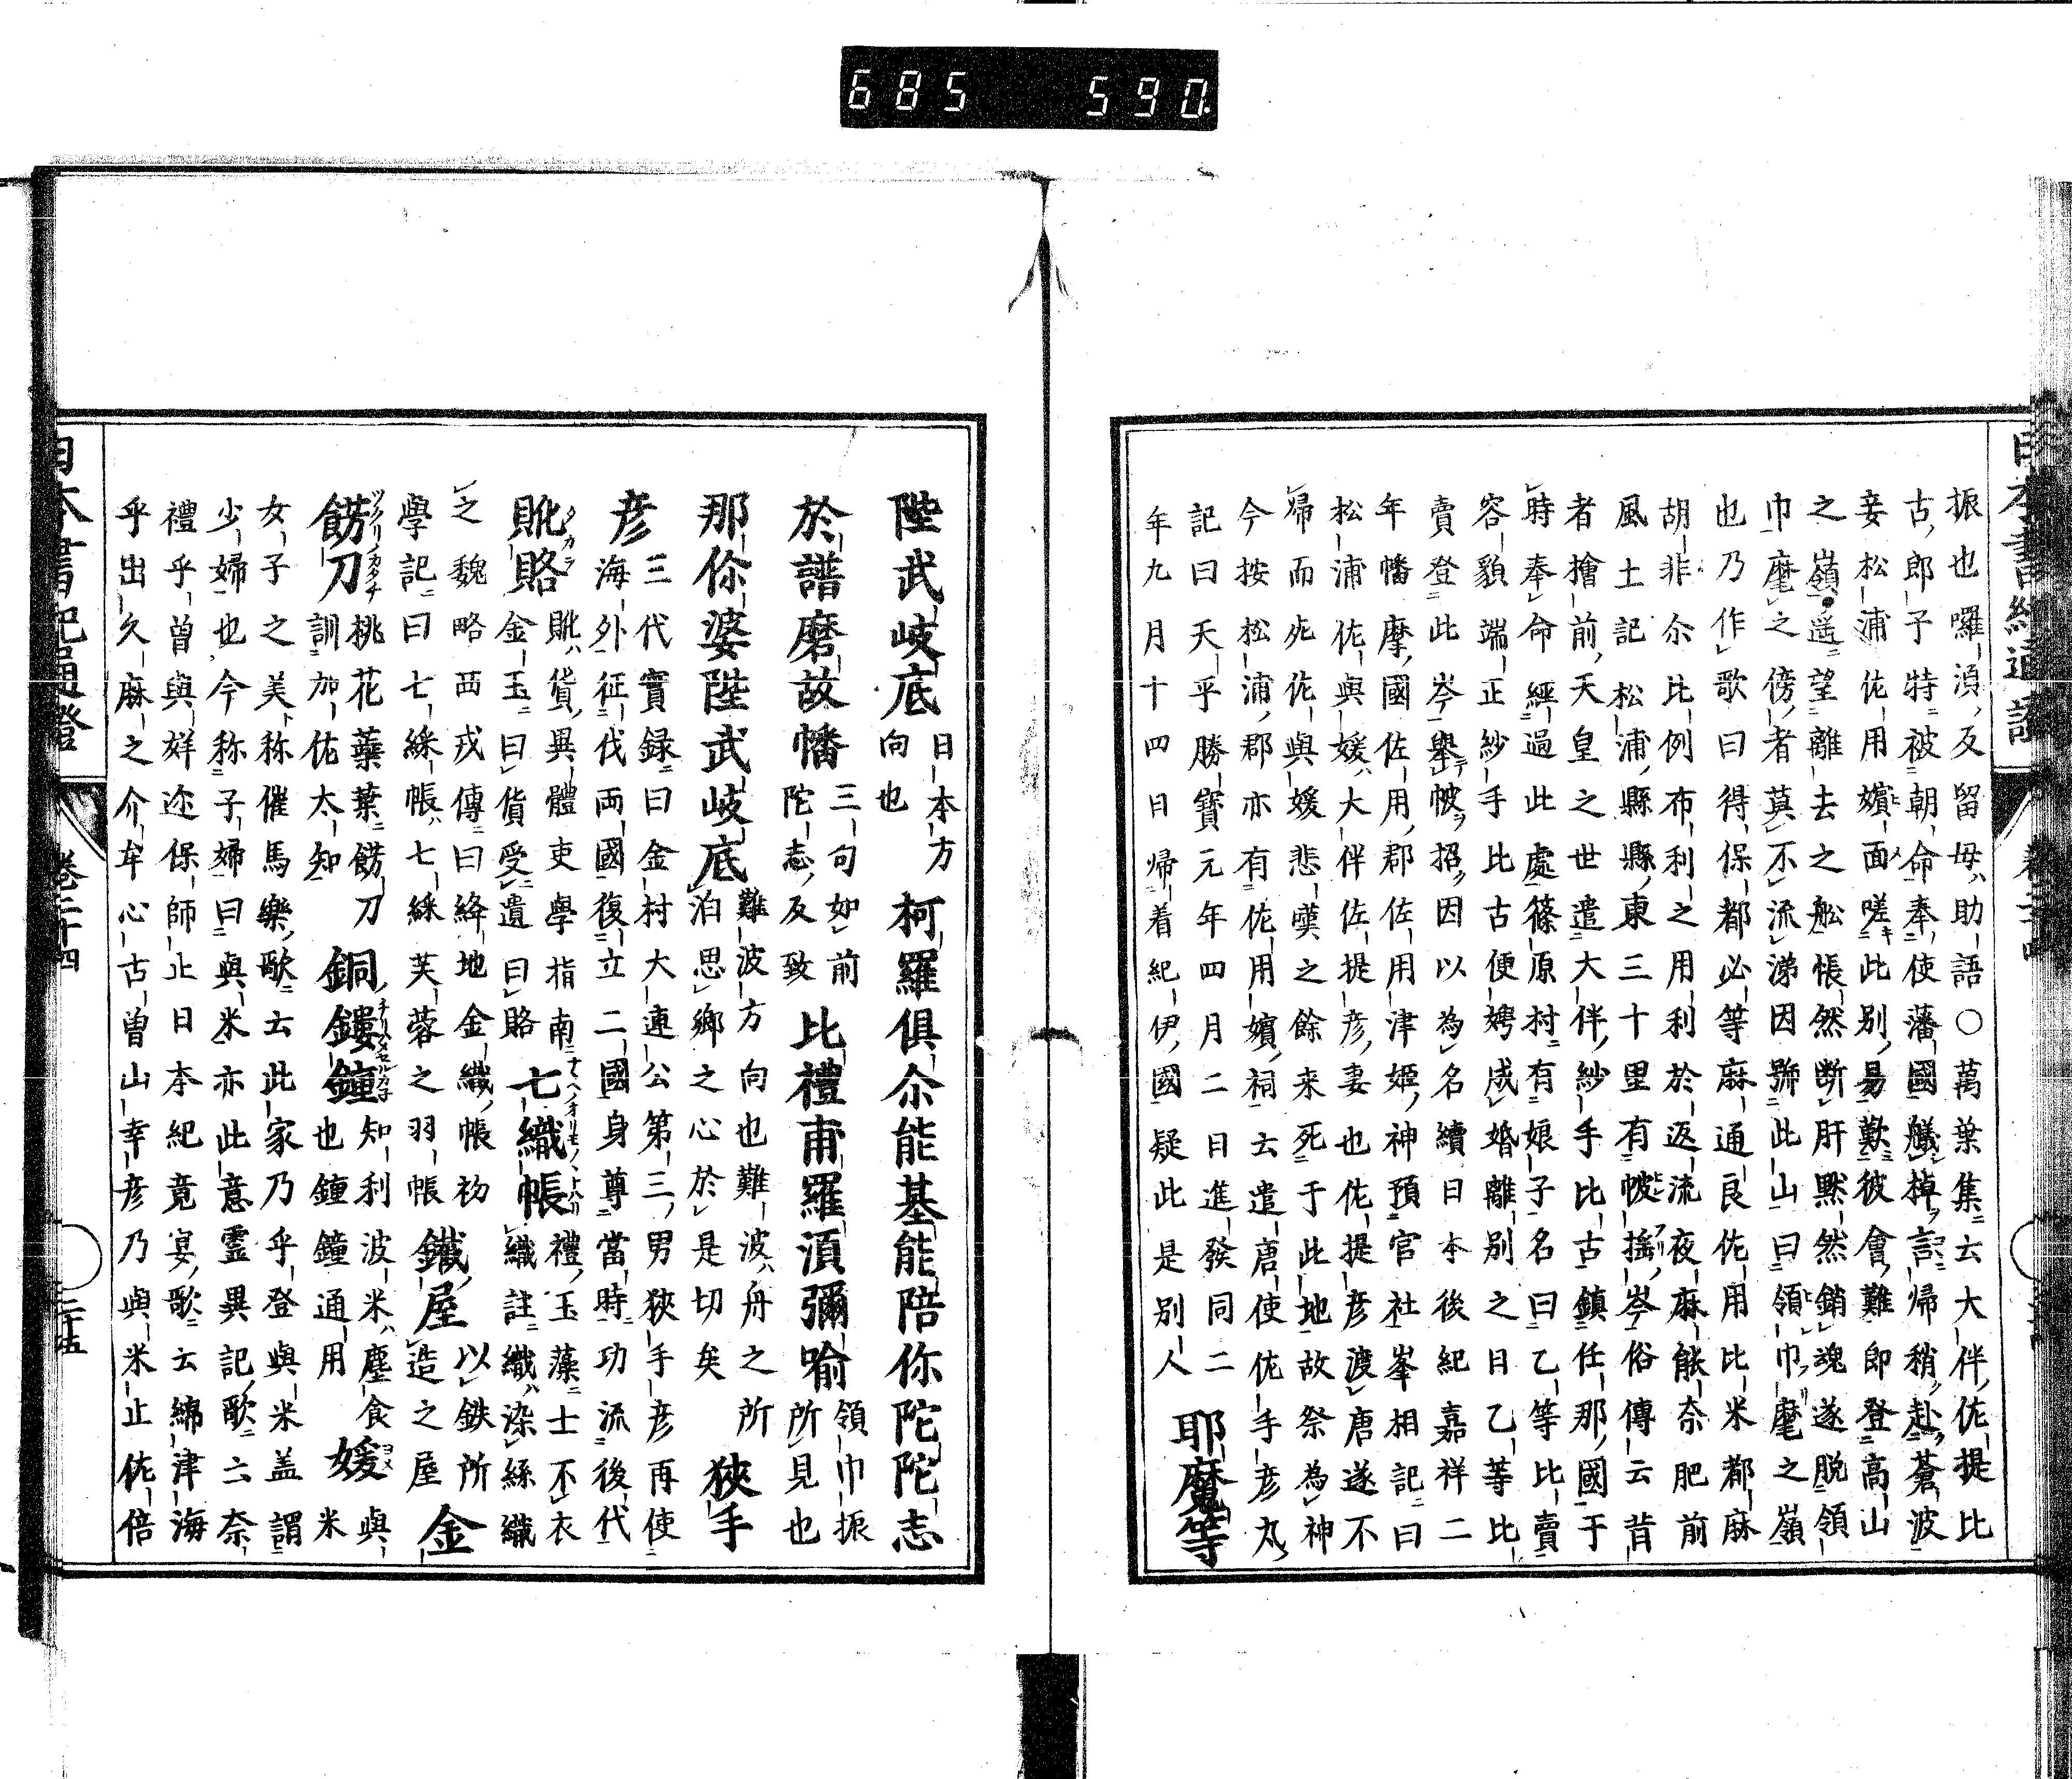 685 590
振也囉湏反留毋助語〇萬葉集云大伴佐提比
古郎子特被朝命奉使藩國艤棹言帰稍赴蒼波
妾松浦佐用嬪面嗟此別易歎彼會難即登高山
之嶺遥望離去之舩悵然断肝黙然銷魂遂脱領
巾麾之傍者莫不流涕因号此山曰領巾麾之嶺
也乃作歌曰得保都必等麻通良佐用比米都麻
胡非尓比例布利之用利於返流夜麻能奈肥前
風土記松浦縣縣東三十里有帔揺岑俗傳云昔
者檜前天皇之世遣大伴紗手比古鎮任那國于
時奉命經過此處篠原村有娘子名曰乙等比賣
容貌端正紗手比古便娉成婚離別之日乙等比
賣登此岑舉帔招因以為名續日本後紀嘉祥二
年幡摩國佐用郡佐用津姫神預官社峯相記曰
松浦佐與媛大伴佐提彦妻也佐提彦渡唐遂不
帰而死佐與媛悲嘆之餘来死于此地故祭為神
今按松浦郡亦有佐用嬪祠云遣唐使佐手彦丸
記曰天平勝寶元年四月二日進發同二
年九月十四日帰着紀伊國疑此是別人
耶魔等
陛武岐底
日本方
向也
柯羅俱尓能基能陪你陀陀志
於譜磨故幡
三句如前
陀志反致
比禮甫羅湏彌喻
領巾振
所見也
那你婆陛武岐底
難波方向也難波舟之所
泊思郷之心於是切矣
狹手
彦
三代實録曰金村大連公第三男狹手彦再使
海外征伐両國復立二國身尊當時功流後代
貺賂
貺貨異體吏學指南
金玉曰貨受遺曰賂
七織帳
禮玉藻士不衣
織註織染絲織
之魏略西戎傳曰絳地金織帳初
學記曰七綵帳七綵芙蓉之羽帳
鐵屋
以鉄所
造之屋
金
餝刀
桃花蘂葉餝刀
訓加佐太知
銅鏤鐘
知利波米塵食
也鐘鐘通用
媛
與米
女子之美称催馬樂歌云此家乃乎登與米盖謂
少婦也今称子婦曰與米亦此意霊異記歌云奈
禮乎曽與娵迩保師止日本紀竟宴歌云綿津海
乎出久麻之介牟心古曽山幸彦乃與米止佐倍
卷二十四
三十五